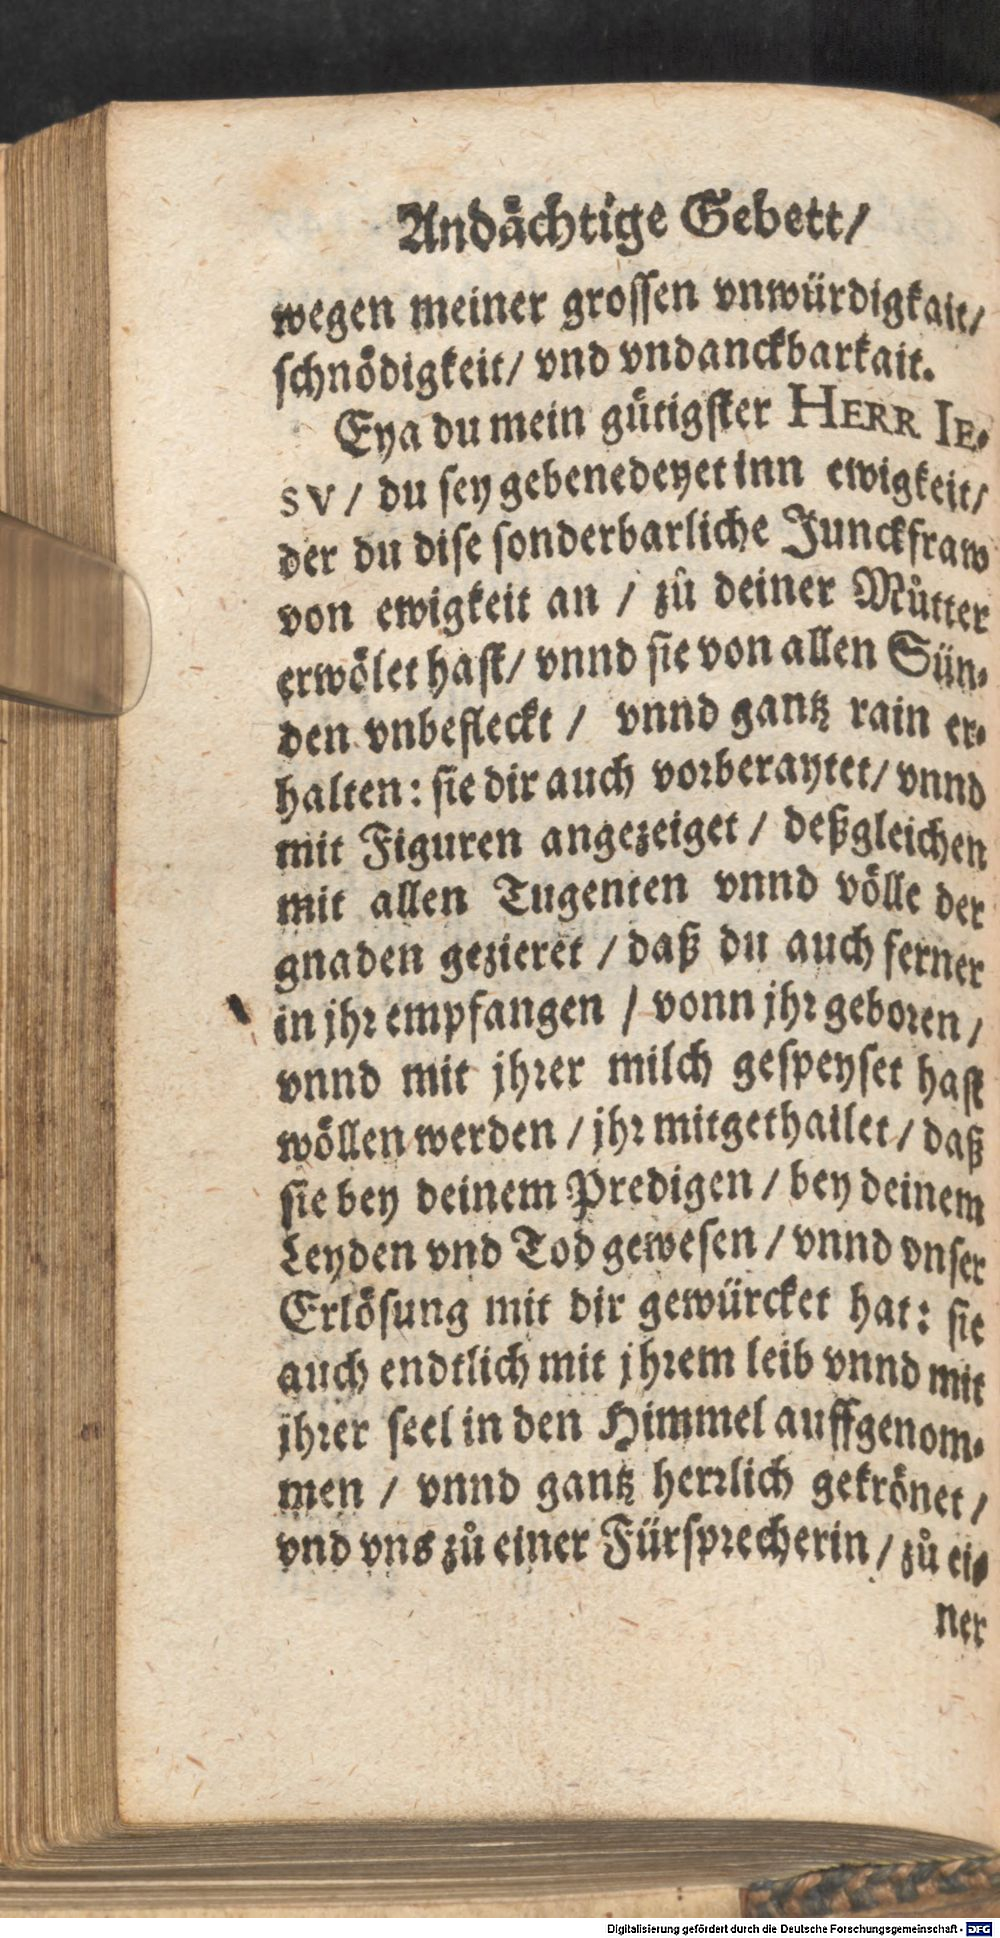 Andåchtige Gebett/
wegen meiner grossen vnwürdigkait/
schnödigkeit/ vnd vndanckbarkait.
Eya du mein gütigster HERR IE-
SV/ du sey gebenedeyet inn ewigkeit/
der du dise sonderbarliche Junckfraw
von ewigkeit an / zů deiner Můtter
erwölet hast/ vnnd sie von allen Sün-
den vnbefleckt / vnnd gantz rain er-
halten: sie dir auch vorberaytet/ vnnd
mit Figuren angezeiget / deßgleichen
mit allen Tugenten vnnd völle der
gnaden gezieret / daß du auch ferner
in jhr empfangen / vonn jhr geboren /
vnnd mit jhrer milch gespeyset hast
wöllen werden / jhr mitgethailet / daß
sie bey deinem Predigen / bey deinem
Leyden vnd Tod gewesen / vnnd vnser
Erlösung mit dir gewürcket hat: sie
auch endtlich mit jhrem leib vnnd mit
jhrer seel in den Himmel auffgenom-
men / vnnd gantz herrlich gekrönet /
vnd vns zů einer Fürsprecherin / zů ei-
ner
Digitalisierung gefördert durch die Deutsche Forschungsgemeinschaft - DFG